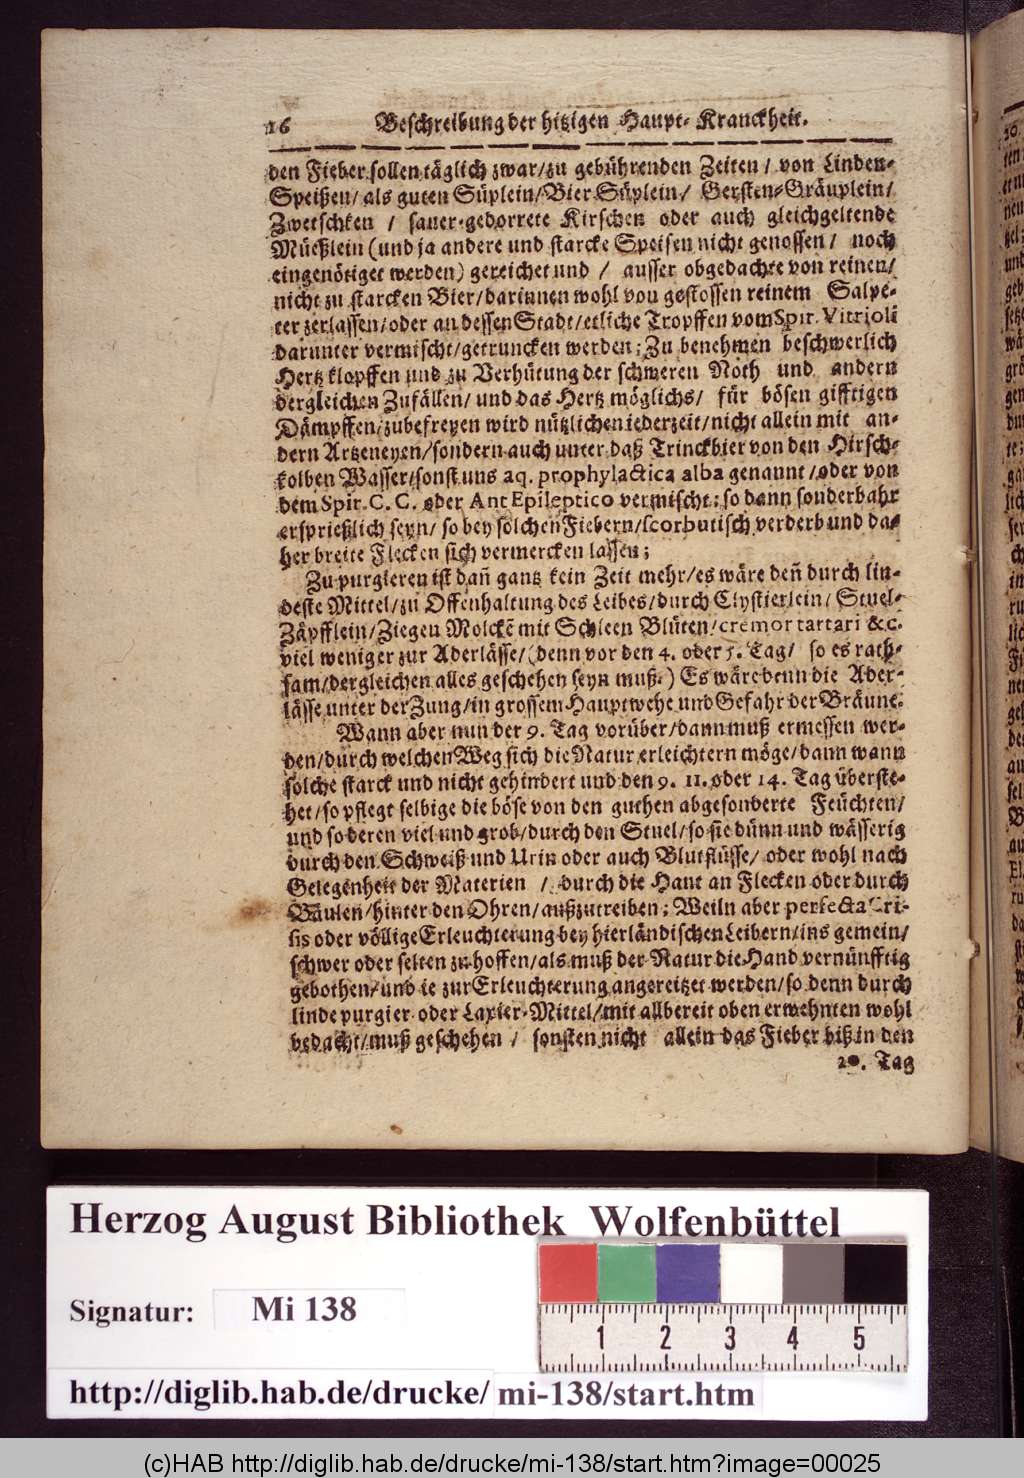 16 Beschreibung der hitzigen Haupt-Kranckheit.
den Fieber sollen täglich zwar/zu gebührenden Zeiten/ von Linden-
Speißen/ als guten Süplein/Bier Süplein/ Gersten-Gräuplein/
Zwetschken / sauer-gedorrete Kirschen oder auch gleichgeltende
Müeßlein (und ja andere und starcke Speisen nicht genossen/ noch
eingenötiget werden) gereichet und / ausser obgedachte von reinen/
nicht zu starcken Bier/darinnen wohl von gestossen reinem Salpe-
ter zerlassen/oder an dessen Stadt/etliche Tropffen vom Spir. Vitrioli
darunter vermischt/getruncken werden; Zu benehmen beschwerlich
Hertz klopffen und zu Verhütung der schweren Noth und andern
dergleichen Zufällen/ und das Hertz möglichs/ für bösen gifftigen
Dämpffen/zubefreyen wird nützlichen iederzeit/nicht allein mit an-
dern Artzeneyen/sondern auch unter daß Trinckbier von den Hirsch-
kolben Wasser/sonst uns aq. prophylactica alba genannt/oder von
dem Spir. C. C. oder Ant Epileptico vermischt; so dann sonderbahr
ersprießlich seyn/ so bey solchen Fiebern/scorbutisch verderb und da-
her breite Flecken sich vermercken lassen;
Zu purgieren ist dañ gantz kein Zeit mehr/es wäre deñ durch lin-
deste Mittel/zu Offenhaltung des Leibes/durch Clystierlein/ Stuel-
Zäpfflein/Ziegen Molckẽ mit Schleen Blüten/cremor tartari &c.
viel weniger zur Aderlässe/(denn vor den 4. oder 5. Tag/ so es rath-
sam/dergleichen alles geschehen seyn muß.) Es wäre denn die Ader-
lässe unter der Zung/in grossem Hauptwehe und Gefahr der Bräune.
Wann aber nun der 9. Tag vorüber/dann muß ermessen wer-
den/durch welchen Weg sich die Natur erleichtern möge/dann wann
solche starck und nicht gehindert und den 9. 11. oder 14. Tag überste-
het/so pflegt selbige die böse von den guthen abgesonderte Feüchten/
und so deren viel und grob/durch den Stuel/so sie dünn und wässerig
durch den Schweiß und Urin oder auch Blutflüsse/ oder wohl nach
Gelegenheit der Materien / durch die Haut an Flecken oder durch
Bäulen/hinter den Ohren/außzutreiben; Weiln aber perfecta Cri-
sis oder völlige Erleuchterung bey hierländischen Leibern/ins gemein/
schwer oder selten zu hoffen/als muß der Natur die Hand vernünfftig
gebothen/und ie zur Erleuchterung angereitzet werden/so denn durch
linde purgier oder Laxier-Mittel/mit allbereit oben erwehnten wohl
bedacht/muß geschehen / sonsten nicht allein das Fieber biß in den
20. Tag
Herzog August Bibliothek Wolfenbüttel
Signatur: Mi 138
1 2 3 4 5
http://diglib.hab.de/drucke/ mi-138/start.htm
(c)HAB http://diglib.hab.de/drucke/mi-138/start.htm?image=00025